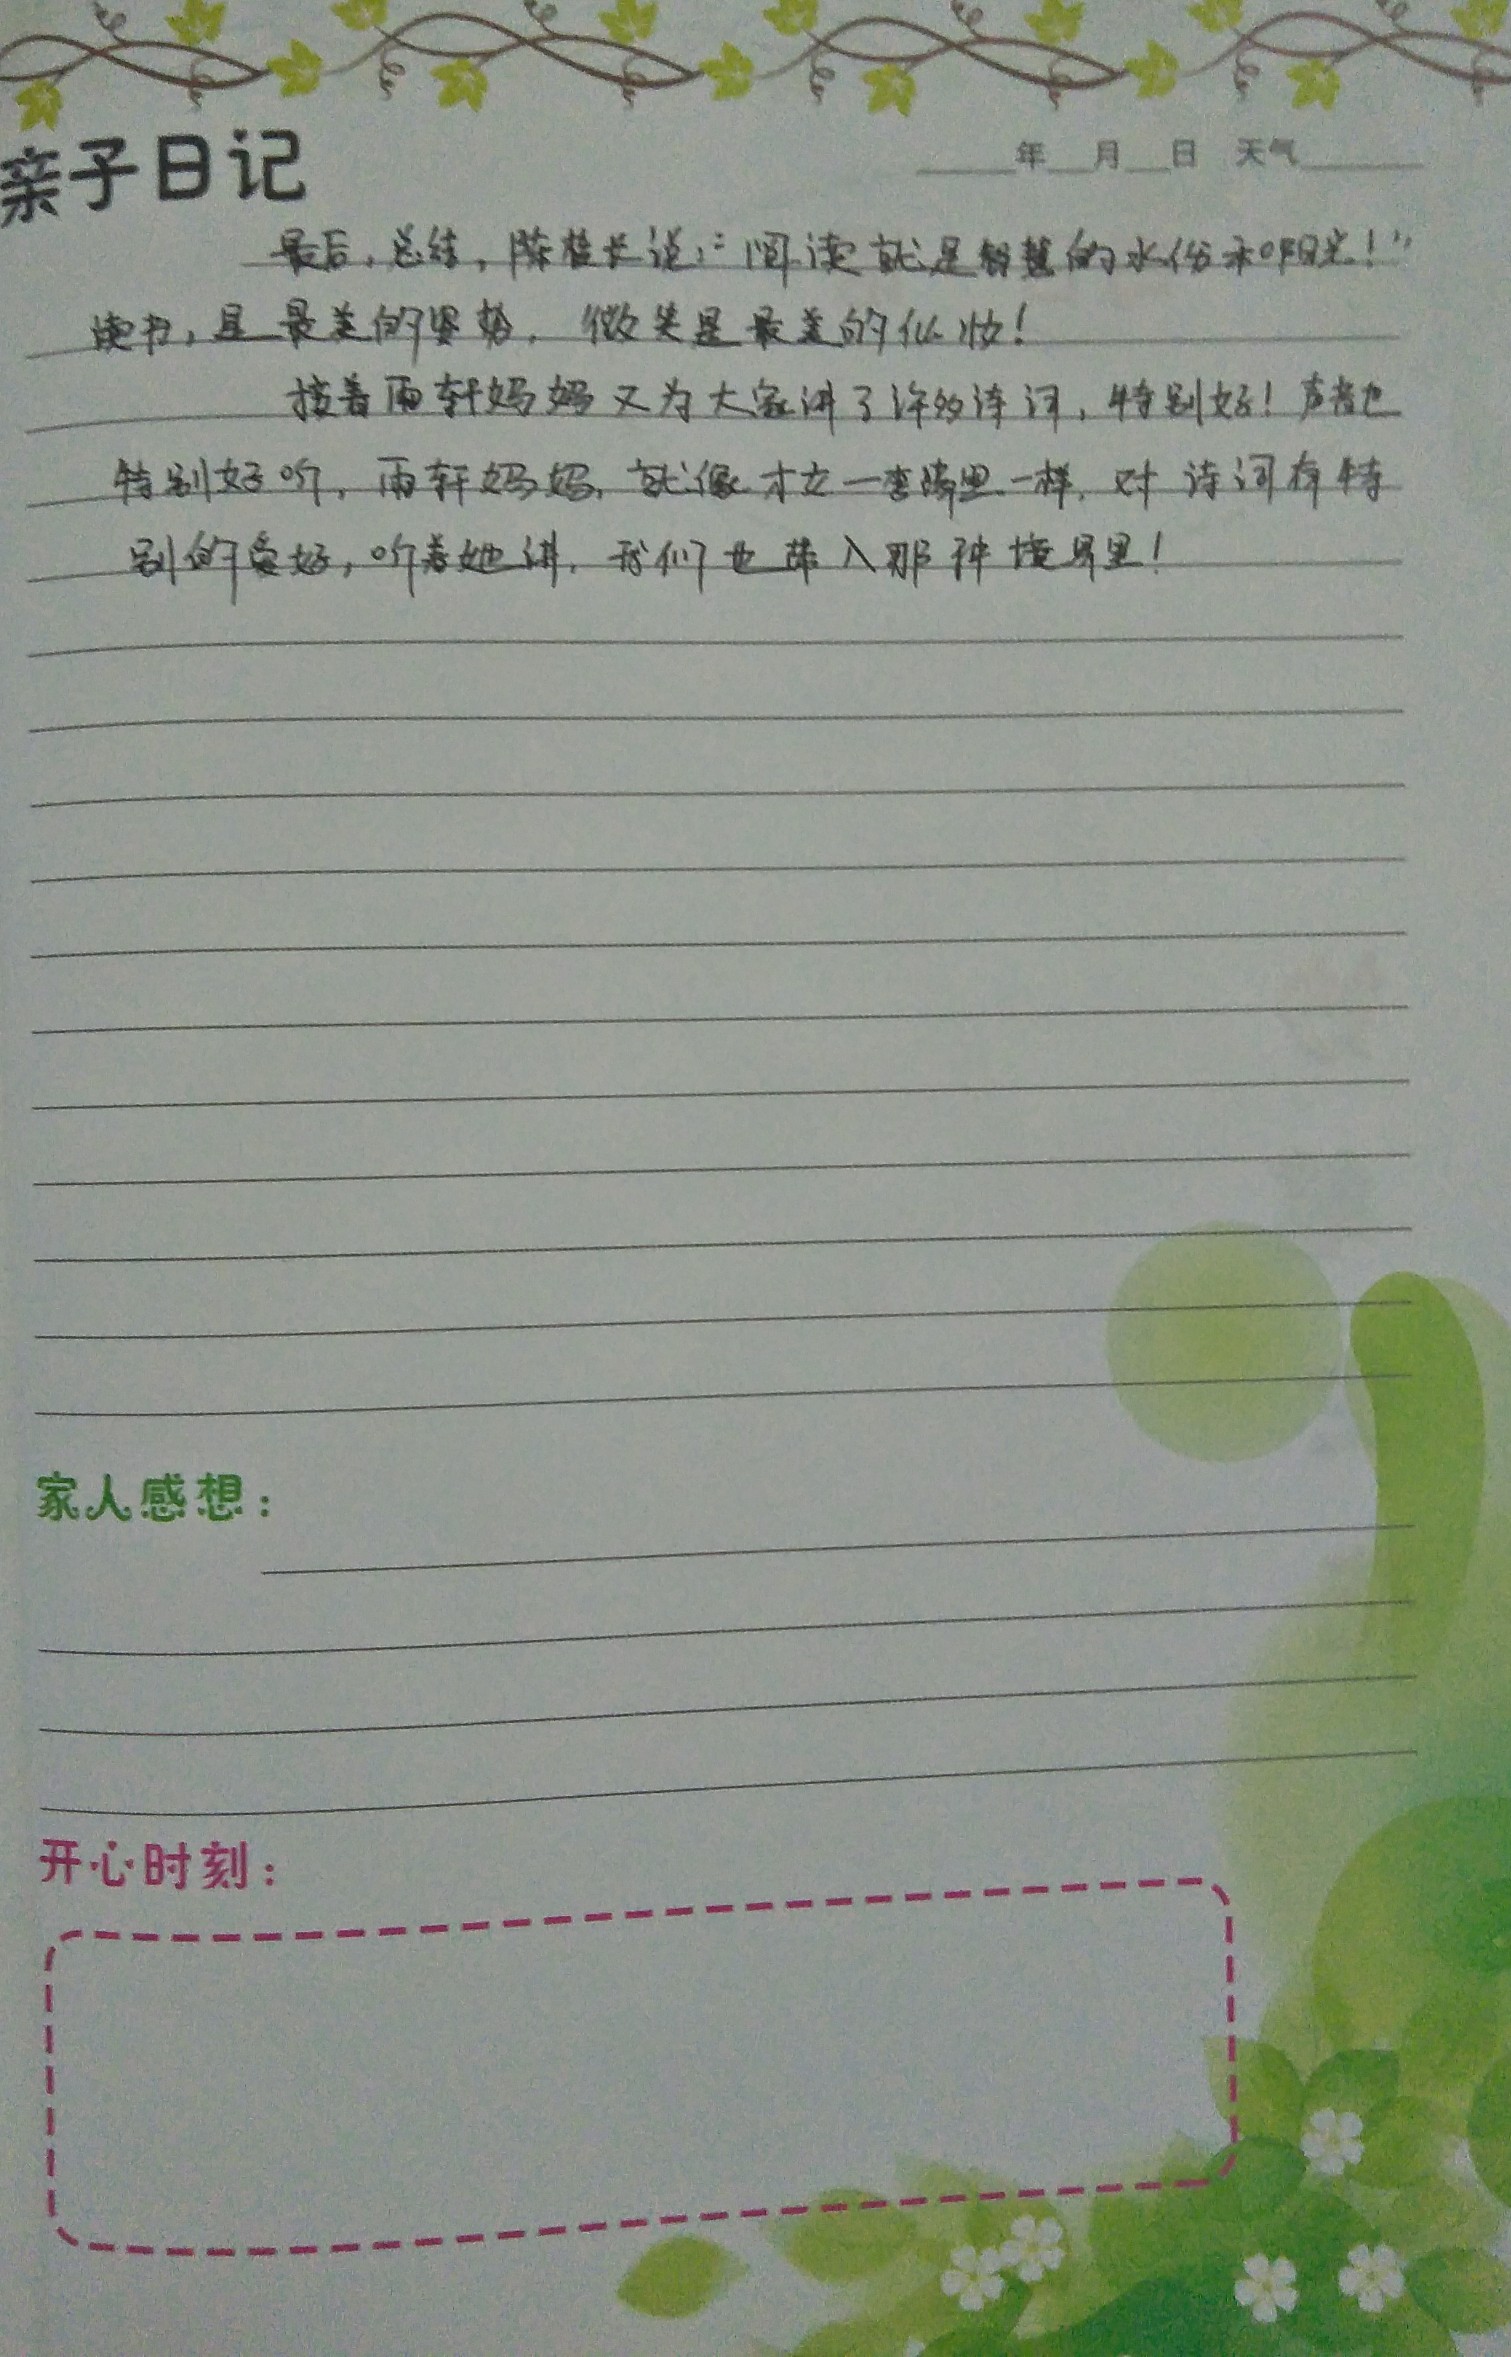 亲子日记
年 月 日 天气
最后,总结,陈校长说:"阅读就是智慧的水份和阳光!"
读书,是最美的姿势,微笑是最美的化妆!
接着雨轩妈妈又为大家讲了许多诗词,特别好!声音也
特别好听,雨轩妈妈,就像 一样,对诗词有特
别的爱好,听着她讲,我们也带入那种境界里!
家人感想:
开心时刻: